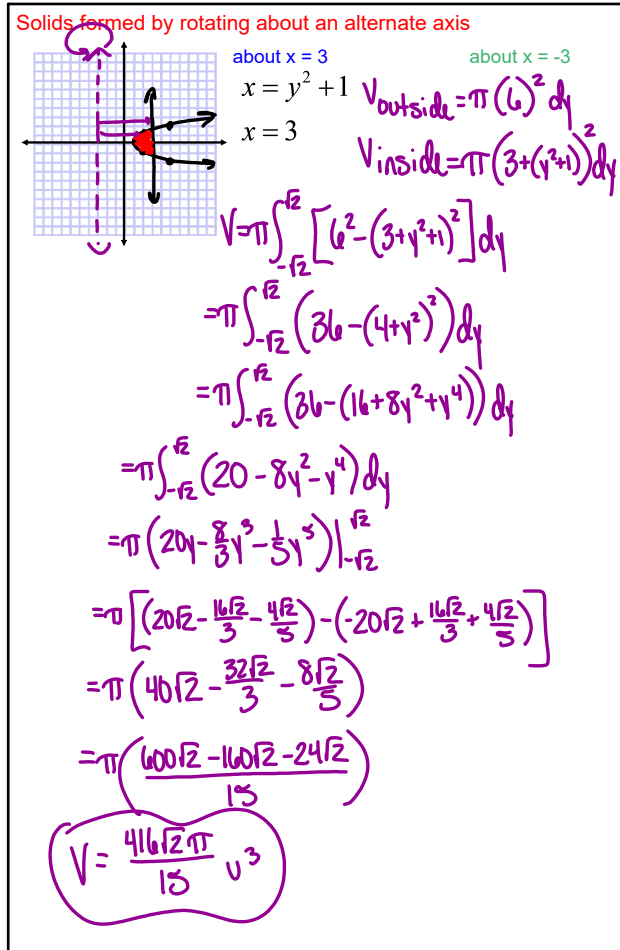 Solids formed by rotating about an alternate axis
about x = 3
about x = -3
x = y² + 1
x = 3
V outside = π(6)² dy
V inside = π(3+(y²+1))² dy
V = π∫_{-√2}^{√2} [6² - (3+y²+1)²] dy
= π∫_{-√2}^{√2} (36 - (4+y²)²) dy
= π∫_{-√2}^{√2} (36 - (16+8y²+y⁴)) dy
= π∫_{-√2}^{√2} (20 - 8y² - y⁴) dy
= π(20y - 8/3 y³ - 1/5 y⁵)|_{-√2}^{√2}
= π[(20√2 - 16√2/3 - 4√2/5) - (-20√2 + 16√2/3 + 4√2/5)]
= π(40√2 - 32√2/3 - 8√2/5)
= π((600√2 - 160√2 - 24√2)/15)
V = 416√2π/15 u³